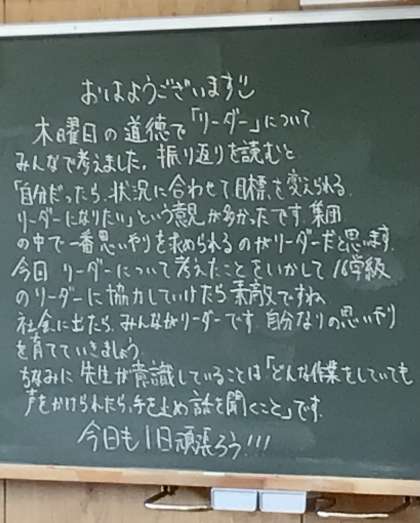 おはようございます
木曜日の道徳で「リーダー」について
みんなで考えました。振り返りを読むと
「自分だったら、状況に合わせて目標を変えられる
リーダーになりたい」という意見が多かったです。集団
の中で一番思いやりを求められるのがリーダーだと思います。
今日 リーダーについて考えたことをいかして 16学級
のリーダーに協力していけたら素敵ですね
社会に出たら、みんながリーダーです 自分なりの思いやり
を育てていきましょう
ちなみに 先生が意識していることは「どんな作業をしていても
声をかけられたら、手を止め 話を聞くこと」です。
今日も1日頑張ろう!!!